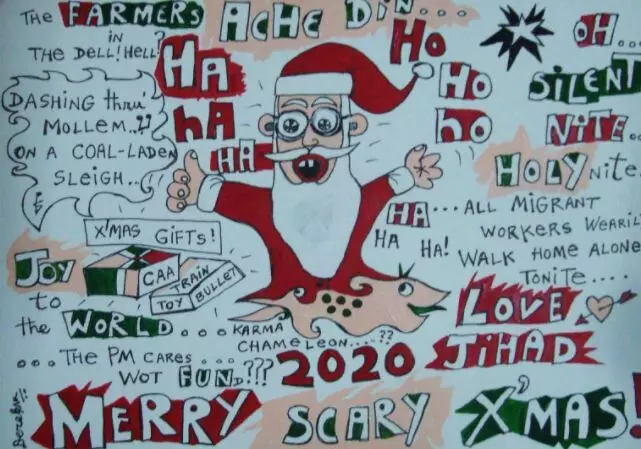 THE FARMERS
in
THE DELL! HELL?
ACHE DIN...
HA
hA
HA
HO
HO
ho
OH...
SILENT
NITE...
HOLY nite.
DASHING thru'
MOLLEM..??
ON A COAL-LADEN
SLEIGH...
HA... ALL MIGRANT
HA HA!
WORKERS WEARIL
WALK HOME ALONE
TONITE....
X'MAS GIFTS!
CAA
TRAIN
TOY BULLET
JOY
to
the WORLD...
KARMA
CHAMELEON....??
...THE PM CARES...
WOT FUND???
2020
LOVE
JIHAD
MERRY SCARY X'MAS!